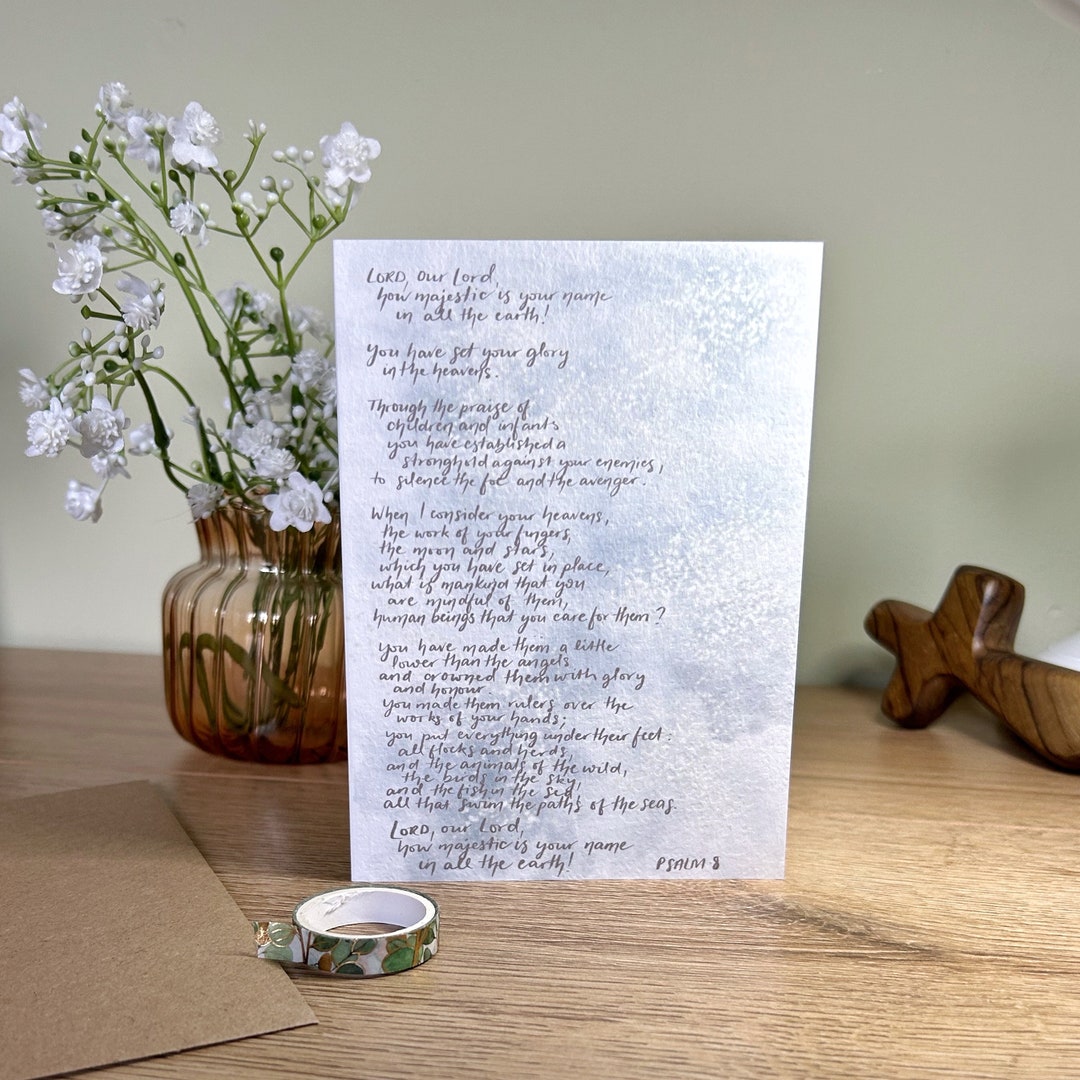 LORD, our Lord,
how majestic is your name
in all the earth!
You have set your glory
in the heavens.
Through the praise of
children and infants
you have established a
stronghold against your enemies,
to silence the foe and the avenger.
When I consider your heavens,
the work of your fingers,
the moon and stars,
which you have set in place,
what is mankind that you
are mindful of them,
human beings that you care for them?
You have made them a little
lower than the angels
and crowned them with glory
and honour.
You made them rulers over the
works of your hands;
you put everything under their feet:
all flocks and herds,
and the animals of the wild,
the birds in the sky,
and the fish in the sea,
all that swim the paths of the seas.
LORD, our Lord,
how majestic is your name
in all the earth!
PSALM 8